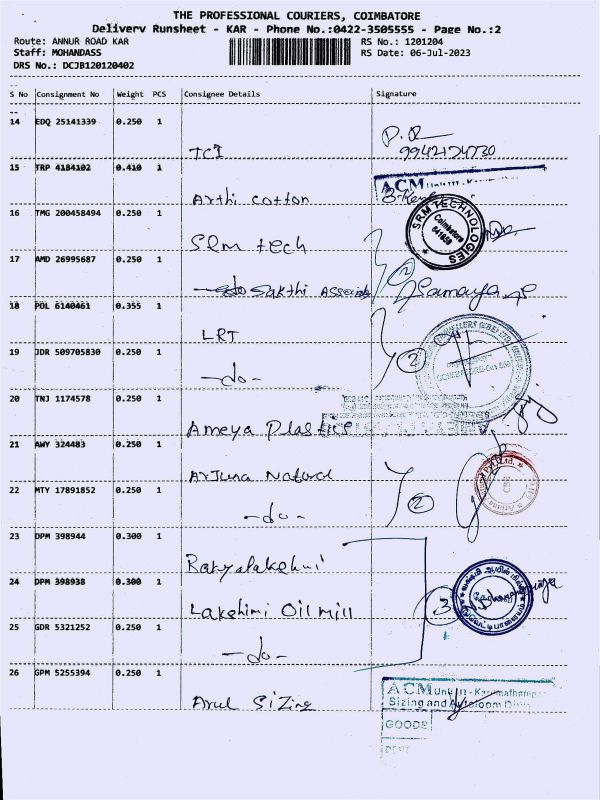 THE PROFESSIONAL COURIERS, COIMBATORE
Delivery Runsheet - KAR - Phone No.:0422-3505555 - Page No.:2
Route: ANNUR ROAD KAR
RS No.: 1201204
Staff: MOHANDASS
RS Date: 06-Jul-2023
DRS No.: DCJB120120402
S No Consignment No Weight PCS Consignee Details Signature
14 EDQ 25141339 0.250 1
TCI
15 TRP 4184102 0.410 1
ACM
Arthi cotton
16 TMG 200458494 0.250 1
SRM TECHNOLOGIES
Coimbatore
Srm tech
17 AMD 26995687 0.250 1
Sakthi Associate 2
18 POL 6140461 0.355 1
LRT
19 JDR 509705830 0.250 1
-do- 2
20 TNJ 1174578 0.250 1
Ameya Plastics
21 AWY 324483 0.250 1
Arjuna Natural
22 MTY 17891852 0.250 1
-do- 2
23 DPM 398944 0.300 1
24 DPM 398938 0.300 1
Lakshimi Oil Mill 3
25 GDR 5321252 0.250 1
-do-
26 GPM 5255394 0.250 1
ACM Unit II - Karumathampatti
Arul Sizing
Sizing and Autoloom
GOODS